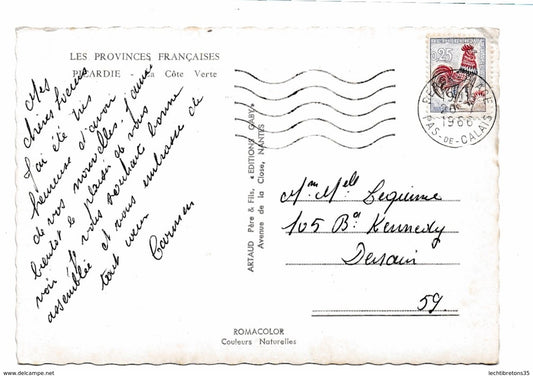 LES PROVINCES FRANÇAISES
PICARDIE - La Côte Verte
Mes
chères
J'ai été très
heureuse d'avoir
de vos nouvelles. J'aurai
bientôt le plaisir de vous
voir je vous souhaite bonne
assemblée et vous embrasse de
tout cœur
Carmen
ARTAUD Père & Fils, "EDITIONS GABY"
Avenue de la Close, NANTES
0,25
1966
PAS-DE-CALAIS
105 Bd Kennedy
Denain
59.
ROMACOLOR
Couleurs Naturelles
delcampe.net
lechtibretons35